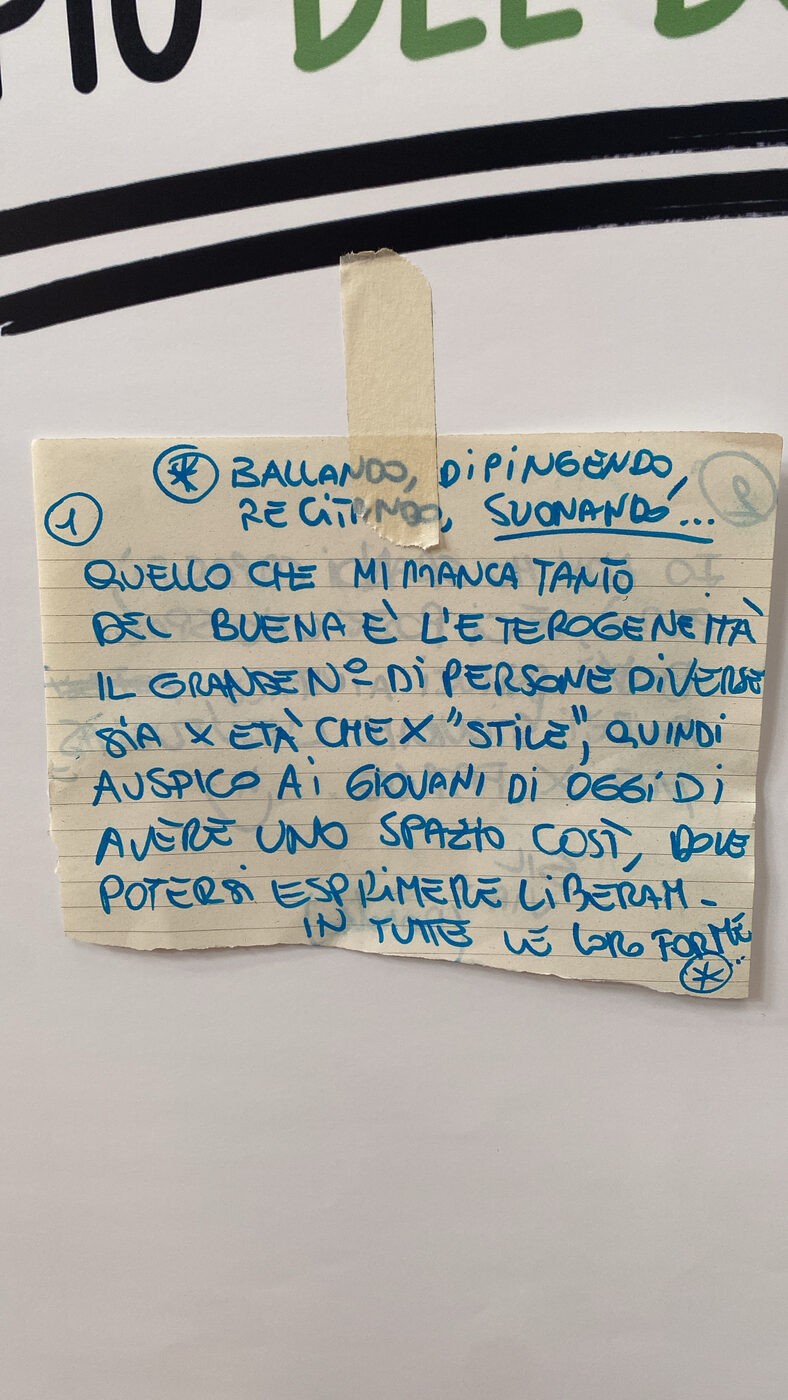 PIÙ DEL
* BALLANDO, DIPINGENDO,
RECITANDO, SUONANDO...
1
QUELLO CHE MI MANCA TANTO
DEL BUENA È L'ETEROGENEITÀ
IL GRANDE Nº DI PERSONE DIVERSE
SIA X ETÀ CHE X "STILE", QUINDI
AUSPICO AI GIOVANI DI OGGI DI
AVERE UNO SPAZIO COSÌ, DOVE
POTERSI ESPRIMERE LIBERAM-
IN TUTTE LE LORO FORME...
*